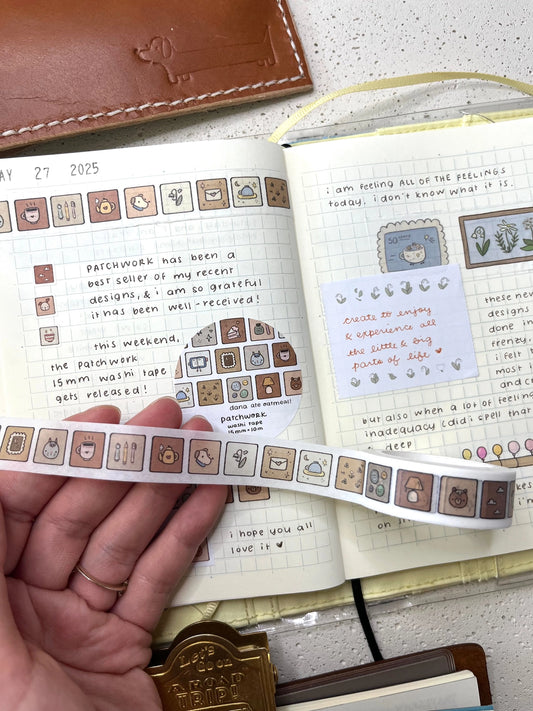 27 2025
PATCHWORK has been a
best seller of my recent
designs, & i am so grateful
it has been well-received!
this weekend,
the patchwork
15mm washi tape
gets released!
dana ate oatmeal!
patchwork
washi tape
15mm x 10m
i hope you all
love it
i am feeling ALL OF THE FEELINGS
today. i don't know what it is.
50
create to enjoy
& experience all
the little & big
parts of life
these new
designs
done in
frenzy.
i felt
most i
and c
but also when a lot of feelin
inadequacy (did i spell that
deep
i'm
on
Let's
go on
A ROAD
TRIP!